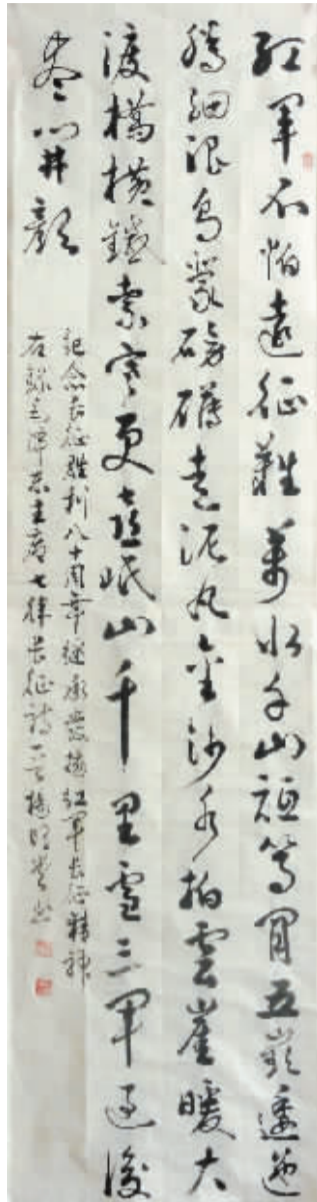 紅軍不怕遠征難萬水千山祇等閒五嶺逶迤
騰細浪烏蒙磅礴走泥丸金沙水拍雲崖暖大
渡橋橫鐵索寒更喜岷山千里雪三軍過後
盡開顏
記念長征勝利八十周年繼承發揚紅軍長征精神
右錄毛澤東主席七律長征詩一首楊